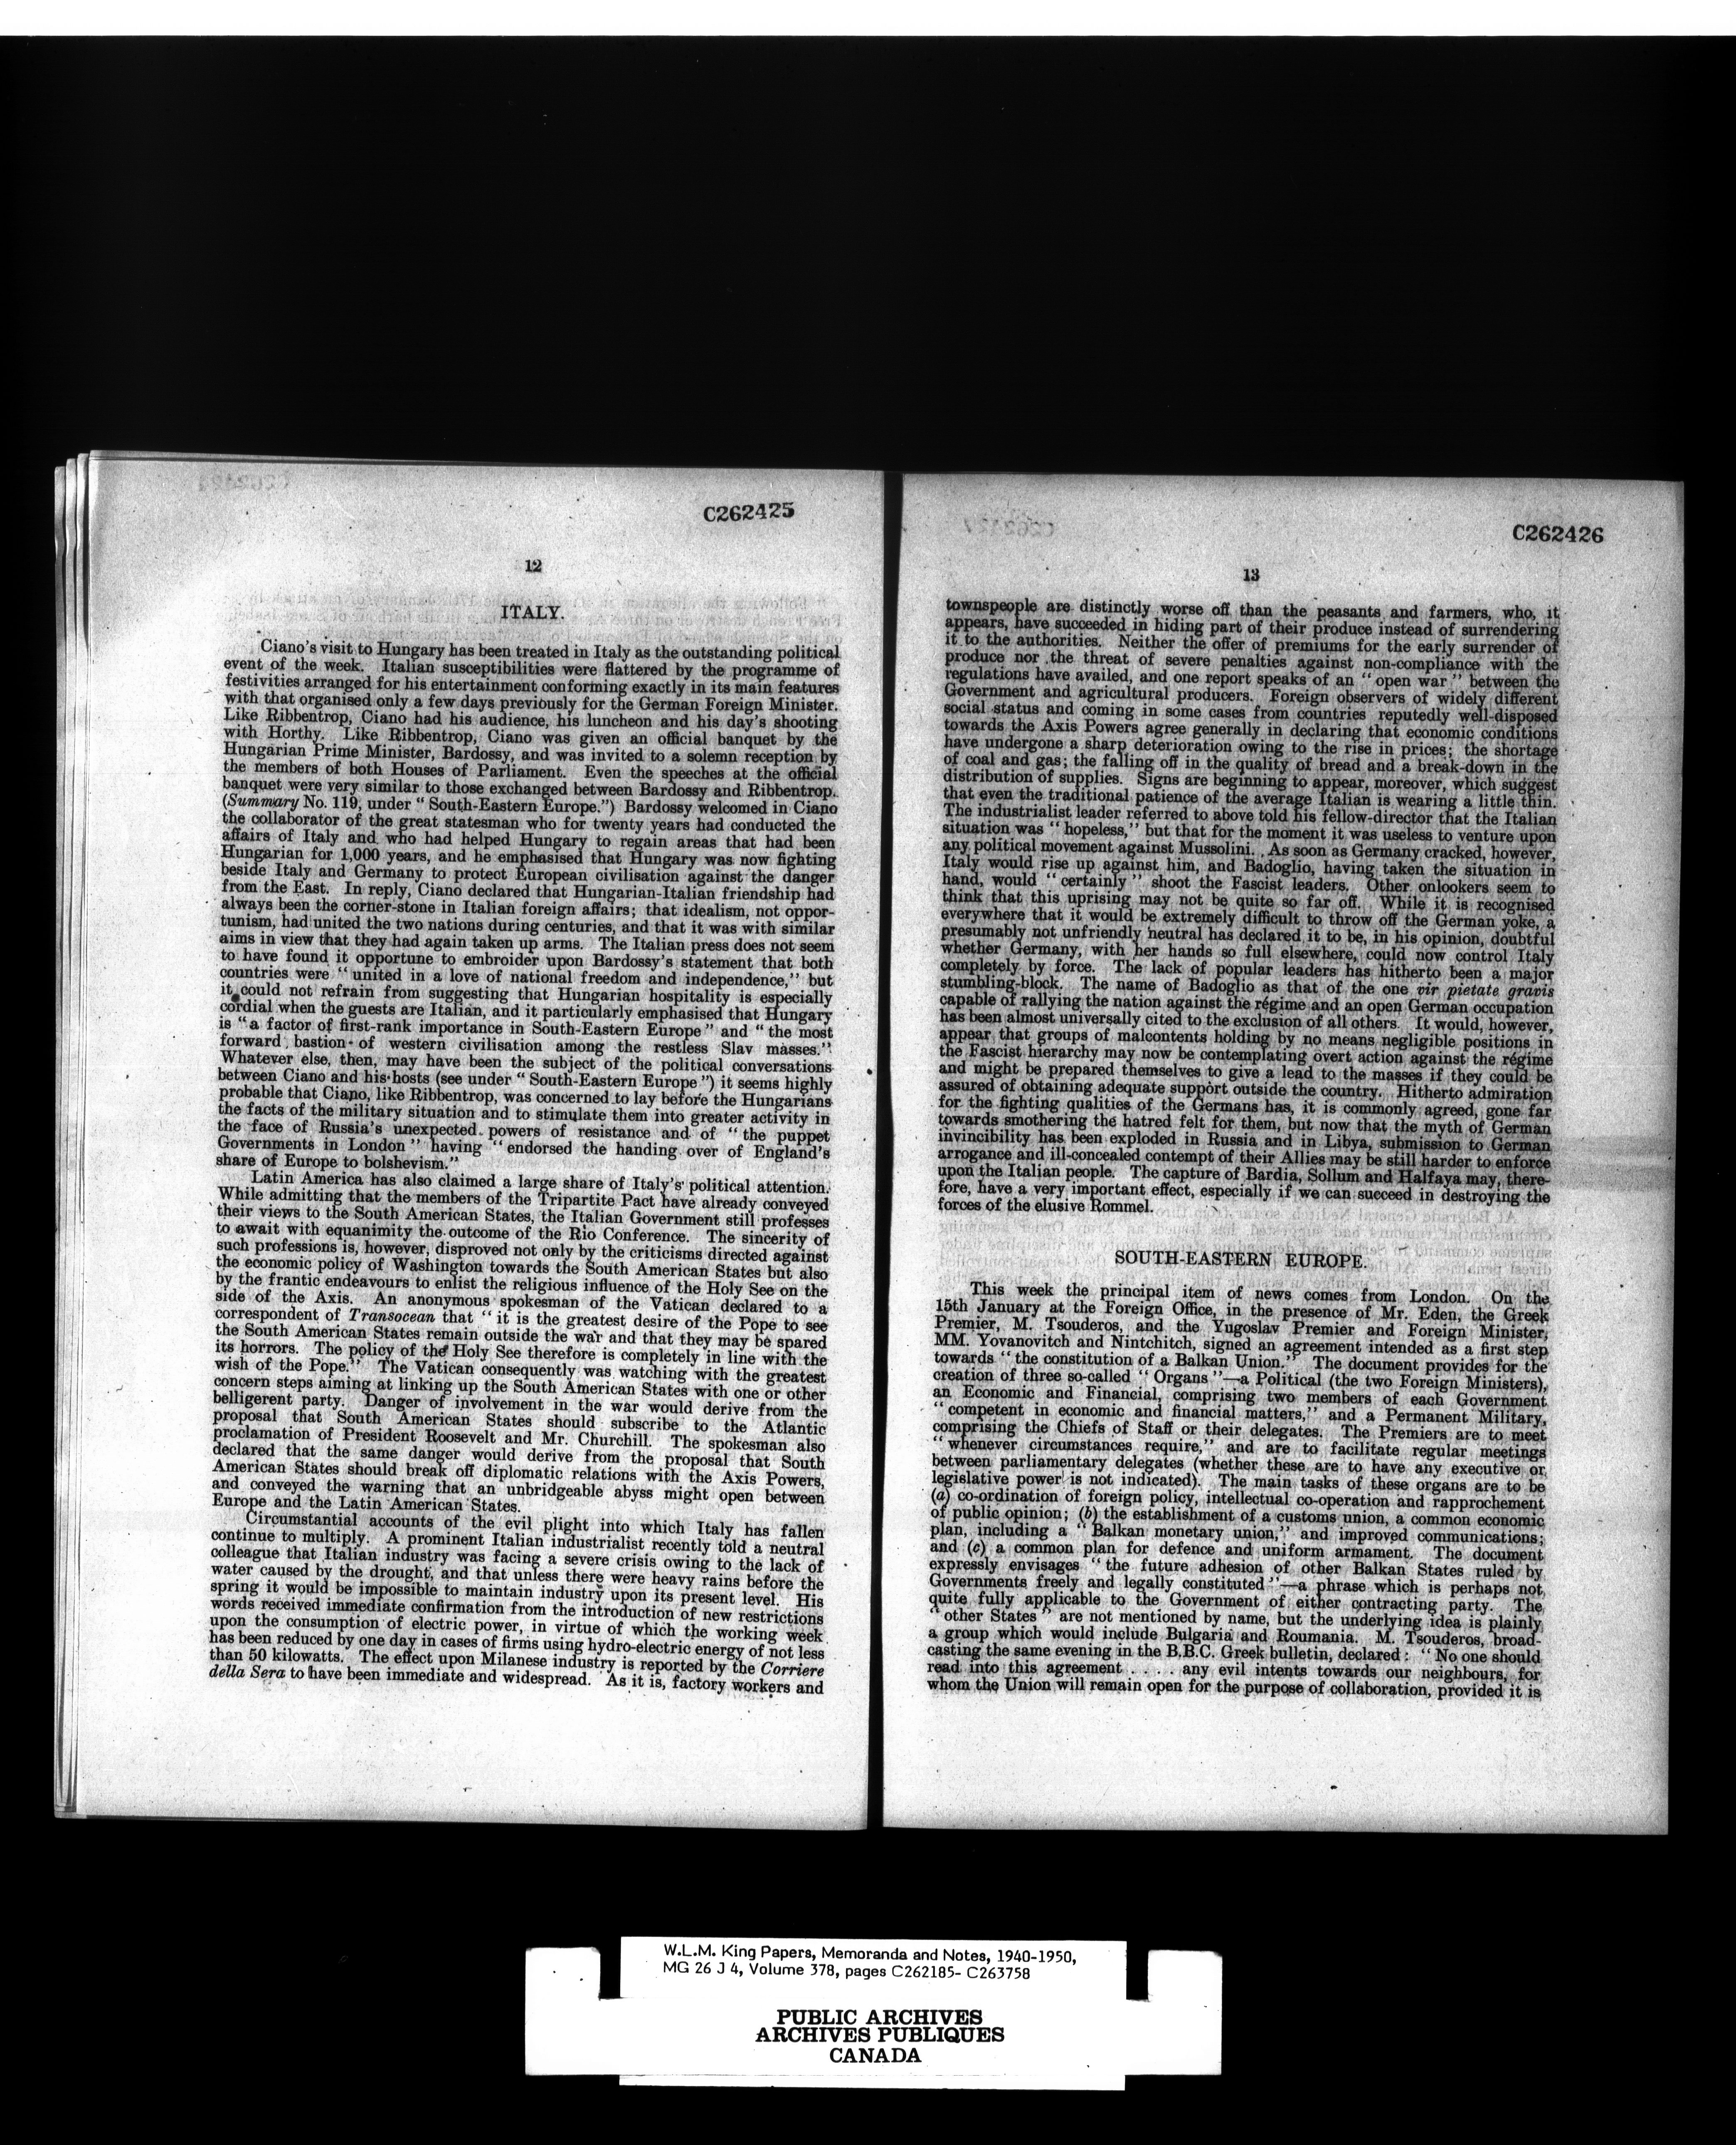 C262425
12
ITALY.
Ciano's visit to Hungary has been treated in Italy as the outstanding political
event of the week. Italian susceptibilities were flattered by the programme of
festivities arranged for his entertainment conforming exactly in its main features
with that organised only a few days previously for the German Foreign Minister.
Like Ribbentrop, Ciano had his audience, his luncheon and his day's shooting
with Horthy. Like Ribbentrop, Ciano was given an official banquet by the
Hungarian Prime Minister, Bardossy, and was invited to a solemn reception by
the members of both Houses of Parliament. Even the speeches at the official
banquet were very similar to those exchanged between Bardossy and Ribbentrop.
(Summary No. 119, under "South-Eastern Europe.") Bardossy welcomed in Ciano
the collaborator of the great statesman who for twenty years had conducted the
affairs of Italy and who had helped Hungary to regain areas that had been
Hungarian for 1,000 years, and he emphasised that Hungary was now fighting
beside Italy and Germany to protect European civilisation against the danger
from the East. In reply, Ciano declared that Hungarian-Italian friendship had
always been the corner-stone in Italian foreign affairs; that idealism, not oppor-
tunism, had united the two nations during centuries, and that it was with similar
aims in view that they had again taken up arms. The Italian press does not seem
to have found it opportune to embroider upon Bardossy's statement that both
countries were "united in a love of national freedom and independence," but
it could not refrain from suggesting that Hungarian hospitality is especially
cordial when the guests are Italian, and it particularly emphasised that Hungary
is "a factor of first-rank importance in South-Eastern Europe" and "the most
forward bastion of western civilisation among the restless Slav masses."
Whatever else, then, may have been the subject of the political conversations
between Ciano and his hosts (see under "South-Eastern Europe") it seems highly
probable that Ciano, like Ribbentrop, was concerned to lay before the Hungarians
the facts of the military situation and to stimulate them into greater activity in
the face of Russia's unexpected powers of resistance and of "the puppet
Governments in London" having "endorsed the handing over of England's
share of Europe to bolshevism."
Latin America has also claimed a large share of Italy's political attention.
While admitting that the members of the Tripartite Pact have already conveyed
their views to the South American States, the Italian Government still professes
to await with equanimity the outcome of the Rio Conference. The sincerity of
such professions is, however, disproved not only by the criticisms directed against
the economic policy of Washington towards the South American States but also
by the frantic endeavours to enlist the religious influence of the Holy See on the
side of the Axis. An anonymous spokesman of the Vatican declared to a
correspondent of Transocean that "it is the greatest desire of the Pope to see
the South American States remain outside the war and that they may be spared
its horrors. The policy of the Holy See therefore is completely in line with the
wish of the Pope." The Vatican consequently was watching with the greatest
concern steps aiming at linking up the South American States with one or other
belligerent party. Danger of involvement in the war would derive from the
proposal that South American States should subscribe to the Atlantic
proclamation of President Roosevelt and Mr. Churchill. The spokesman also
declared that the same danger would derive from the proposal that South
American States should break off diplomatic relations with the Axis Powers,
and conveyed the warning that an unbridgeable abyss might open between
Europe and the Latin American States.
Circumstantial accounts of the evil plight into which Italy has fallen
continue to multiply. A prominent Italian industrialist recently told a neutral
colleague that Italian industry was facing a severe crisis owing to the lack of
water caused by the drought, and that unless there were heavy rains before the
spring it would be impossible to maintain industry upon its present level. His
words received immediate confirmation from the introduction of new restrictions
upon the consumption of electric power, in virtue of which the working week
has been reduced by one day in cases of firms using hydro-electric energy of not less
than 50 kilowatts. The effect upon Milanese industry is reported by the Corriere
della Sera to have been immediate and widespread. As it is, factory workers and
C262426
13
townspeople are distinctly worse off than the peasants and farmers, who, it
appears, have succeeded in hiding part of their produce instead of surrendering
it to the authorities. Neither the offer of premiums for the early surrender of
produce nor the threat of severe penalties against non-compliance with the
regulations have availed, and one report speaks of an "open war" between the
Government and agricultural producers. Foreign observers of widely different
social status and coming in some cases from countries reputedly well-disposed
towards the Axis Powers agree generally in declaring that economic conditions
have undergone a sharp deterioration owing to the rise in prices; the shortage
of coal and gas; the falling off in the quality of bread and a break-down in the
distribution of supplies. Signs are beginning to appear, moreover, which suggest
that even the traditional patience of the average Italian is wearing a little thin.
The industrialist leader referred to above told his fellow-director that the Italian
situation was "hopeless," but that for the moment it was useless to venture upon
any political movement against Mussolini. As soon as Germany cracked, however,
Italy would rise up against him, and Badoglio, having taken the situation in
hand, would "certainly" shoot the Fascist leaders. Other onlookers seem to
think that this uprising may not be quite so far off. While it is recognised
everywhere that it would be extremely difficult to throw off the German yoke, a
presumably not unfriendly neutral has declared it to be, in his opinion, doubtful
whether Germany, with her hands so full elsewhere, could now control Italy
completely by force. The lack of popular leaders has hitherto been a major
stumbling-block. The name of Badoglio as that of the one vir pietate gravis
capable of rallying the nation against the régime and an open German occupation
has been almost universally cited to the exclusion of all others. It would, however,
appear that groups of malcontents holding by no means negligible positions in
the Fascist hierarchy may now be contemplating overt action against the régime
and might be prepared themselves to give a lead to the masses if they could be
assured of obtaining adequate support outside the country. Hitherto admiration
for the fighting qualities of the Germans has, it is commonly agreed, gone far
towards smothering the hatred felt for them, but now that the myth of German
invincibility has been exploded in Russia and in Libya, submission to German
arrogance and ill-concealed contempt of their Allies may be still harder to enforce
upon the Italian people. The capture of Bardia, Sollum and Halfaya may, there-
fore, have a very important effect, especially if we can succeed in destroying the
forces of the elusive Rommel.
SOUTH-EASTERN EUROPE.
This week the principal item of news comes from London. On the
15th January at the Foreign Office, in the presence of Mr. Eden, the Greek
Premier, M. Tsouderos, and the Yugoslav Premier and Foreign Minister,
MM. Yovanovitch and Nintchitch, signed an agreement intended as a first step
towards "the constitution of a Balkan Union." The document provides for the
creation of three so-called "Organs"—a Political (the two Foreign Ministers),
an Economic and Financial, comprising two members of each Government
"competent in economic and financial matters," and a Permanent Military,
comprising the Chiefs of Staff or their delegates. The Premiers are to meet
"whenever circumstances require," and are to facilitate regular meetings
between parliamentary delegates (whether these are to have any executive or
legislative power is not indicated). The main tasks of these organs are to be
(a) co-ordination of foreign policy, intellectual co-operation and rapprochement
of public opinion; (b) the establishment of a customs union, a common economic
plan, including a "Balkan monetary union," and improved communications;
and (c) a common plan for defence and uniform armament. The document
expressly envisages "the future adhesion of other Balkan States ruled by
Governments freely and legally constituted"—a phrase which is perhaps not
quite fully applicable to the Government of either contracting party. The
"other States" are not mentioned by name, but the underlying idea is plainly
a group which would include Bulgaria and Roumania. M. Tsouderos, broad-
casting the same evening in the B.B.C. Greek bulletin, declared: "No one should
read into this agreement . . . . any evil intents towards our neighbours, for
whom the Union will remain open for the purpose of collaboration, provided it is
W.L.M. King Papers, Memoranda and Notes, 1940-1950,
MG 26 J 4, Volume 378, pages C262185- C263758
PUBLIC ARCHIVES
ARCHIVES PUBLIQUES
CANADA